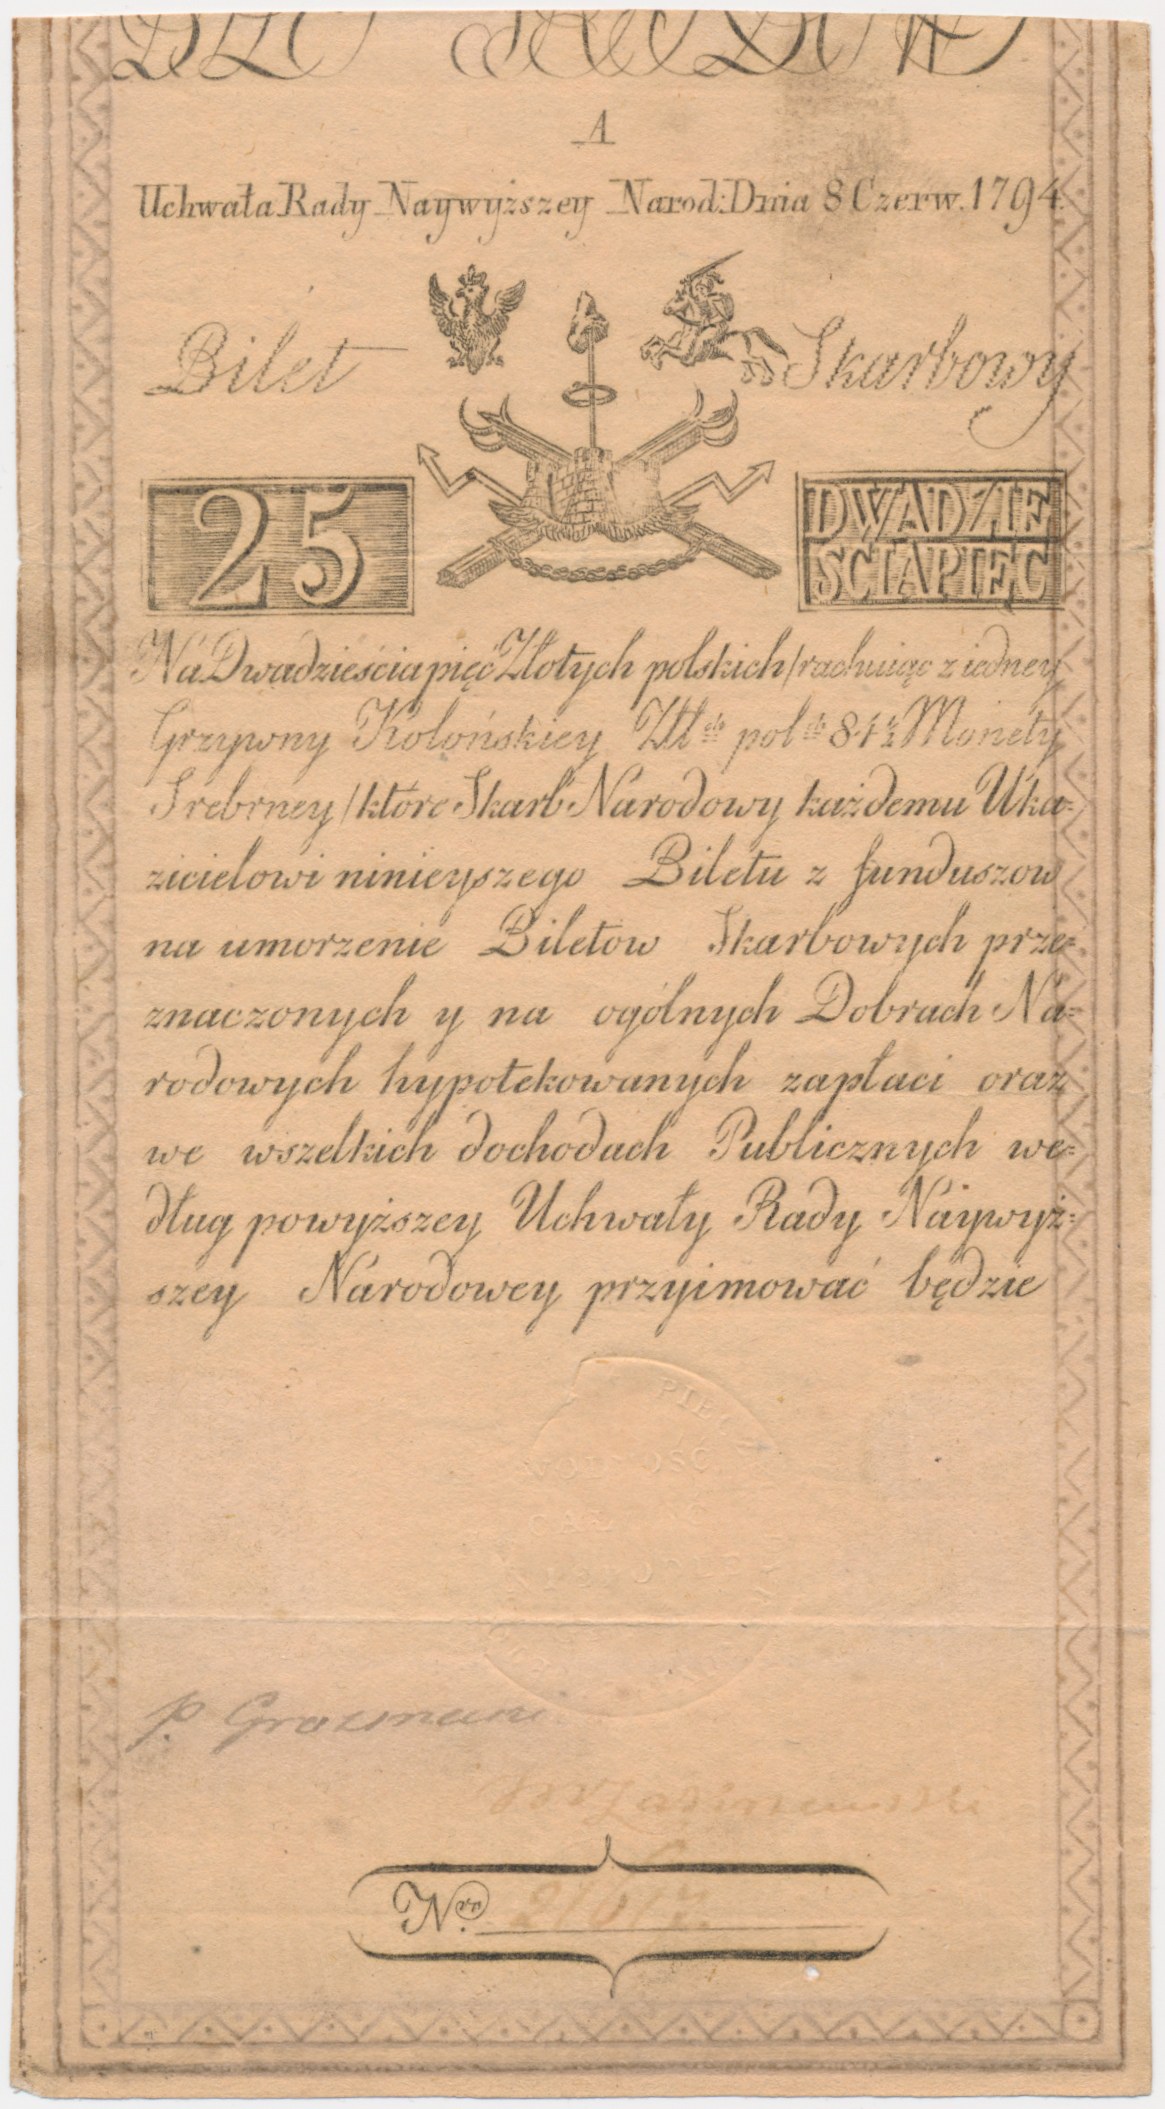 A
Uchwała Rady Naywyższey Narod: Dnia 8 Czerw. 1794
Bilet Skarbowy
25 DWADZIE
SCIAPIĘC
Na Dwadzieścia pięć Złotych polskich / rachuiąc z iedney
Grzywny Kolońskiey Złł ch pol ch 84½ Monety
Srebrney / które Skarb Narodowy każdemu Uka-
zicielowi ninieyszego Biletu z funduszow
na umorzenie Biletow Skarbowych prze-
znaczonych y na ogólnych Dobrach Na-
rodowych hypotekowanych zapłaci oraz
we wszelkich dochodach Publicznych we-
dług powyższey Uchwały Rady Naywyż-
szey Narodowey przyimować będzie
WOLNOŚĆ
p. Grozmani
Nro